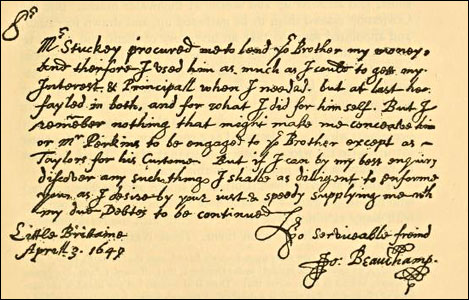 Sr
Mr. Stuckey procured me to lend yor Brother my money,
And therefore I used him as much as I could to gett my
Interest & Principall when I needed. but at last hee
fayled in both, and for what I did for him self. But I
remember nothing that might make me conceake him
or Mr Perkins to be engaged to yor Brother except as —
Taylors for his Custome. But if I can by my best enquiry
discover any such thing I shalbe as diligent to enforme
you, as I desire by your just & speedy supplying me with
my due Debtes to be continued
Yor serviceable freind
Little Brittaine
Aprill 3. 1648
Jo: Beauchamp.